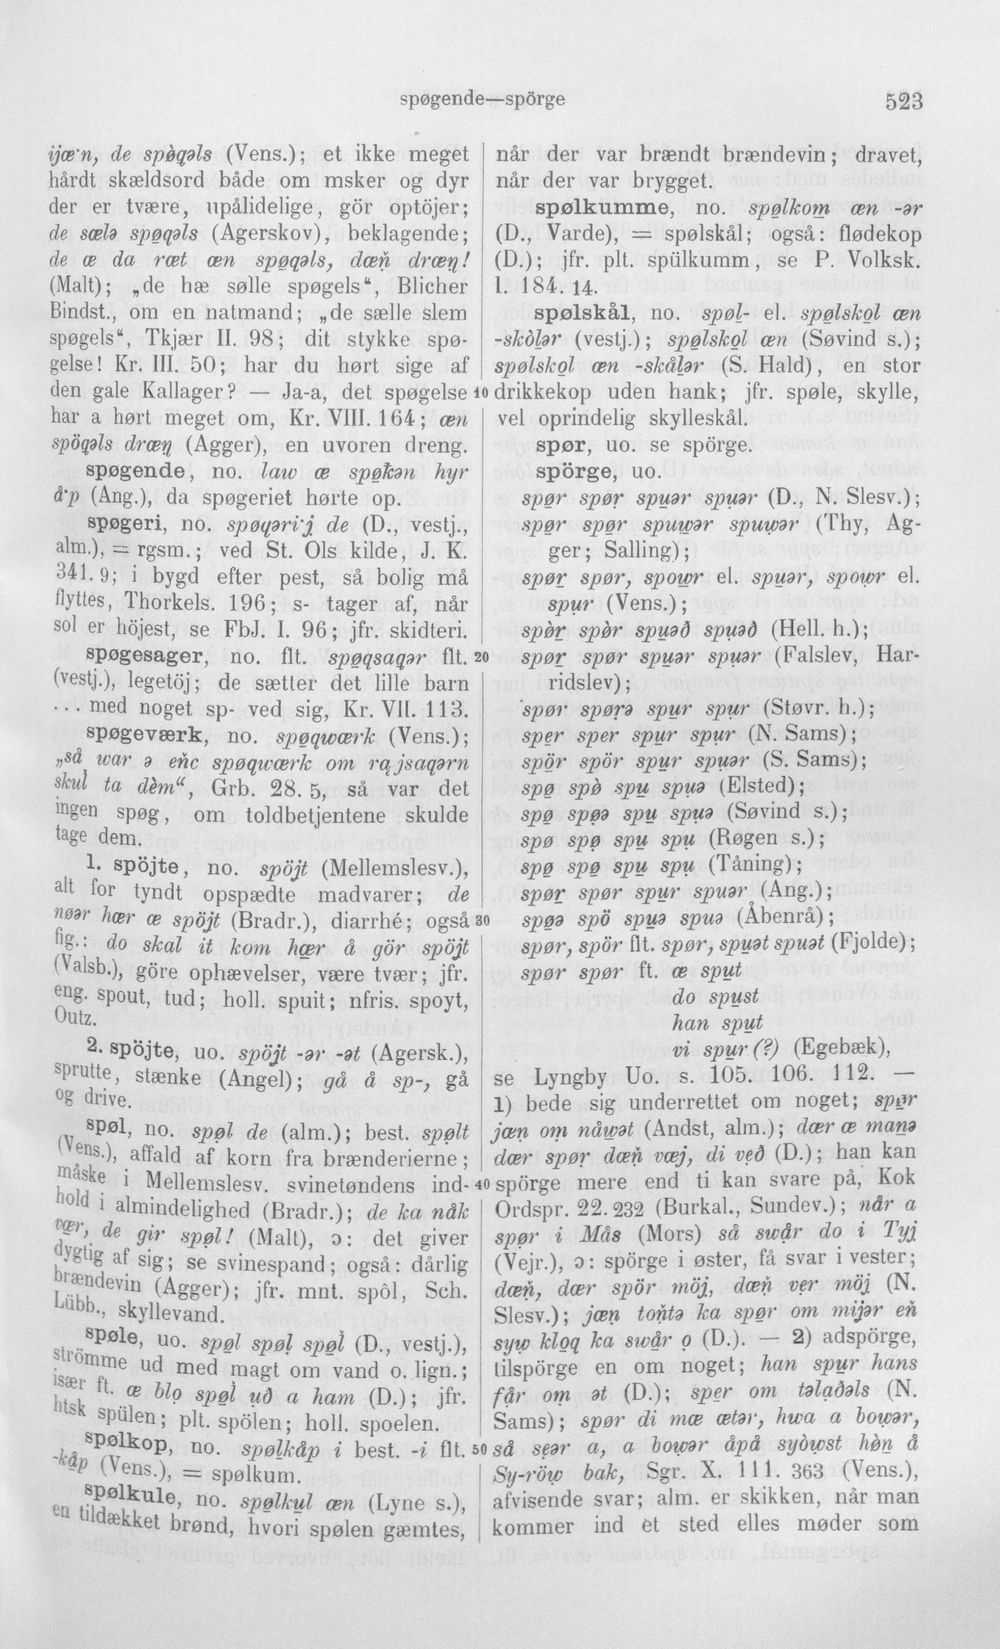 spøgende—spörge
523
ijæ·n, de spèqəls (Vens.); et ikke meget
hårdt skældsord både om msker og dyr
der er tvære, upålidelige, gör optöjer;
de sælə spøqəls (Agerskov), beklagende;
de æ da ræt æn spøqəls, dæṅ dræŋ!
(Malt); „de hæ sølle spøgels“, Blicher
Bindst., om en natmand; „de sælle slem
spøgels“, Tkjær II. 98; dit stykke spø-
gelse! Kr. III. 50; har du hørt sige af
den gale Kallager? — Ja-a, det spøgelse
har a hørt meget om, Kr. VIII. 164; æn
spöqəls dræŋ (Agger), en uvoren dreng.
spøgende, no. law æ spøkən hyr
å·p (Ang.), da spøgeriet hørte op.
spøgeri, no. spøqəri·j de (D., vestj.,
alm.), = rgsm.; ved St. Ols kilde, J. K.
341. 9; i bygd efter pest, så bolig må
flyttes, Thorkels. 196; s- tager af, når
sol er höjest, se FbJ. I. 96; jfr. skidteri.
spøgesager, no. flt. spøqsaqər flt.
(vestj.), legetöj; de sætter det lille barn
... med noget sp- ved sig, Kr. VII. 113.
spøgeværk, no. spøqwærk (Vens.);
„så war ə eṅc spøqwærk om rajsaqərn
skul ta dèm“, Grb. 28. 5, så var det
ingen spøg, om toldbetjentene skulde
tage dem.
1. spöjte, no. spöjt (Mellemslesv.),
alt for tyndt opspædte madvarer; de
nøər hær æ spöjt (Bradr.), diarrhé; også
fig.: do skal it kom hær å gör spöjt
(Valsb.), göre ophævelser, være tvær; jfr.
eng. spout, tud; holl. spuit; nfris. spoyt,
Outz.
2. spöjte, uo. spöjt -ər -ət (Agersk.),
sprutte, stænke (Angel); gå å sp-, gå
og drive.
spøl, no. spøl de (alm.); best. spølt
(Vens.), affald af korn fra brænderierne;
måske i Mellemslesv. svinetøndens ind-
hold i almindelighed (Bradr.); de ka nåk
vær, de gir spøl! (Malt), ɔ: det giver
dygtig af sig; se svinespand; også: dårlig
brændevin (Agger); jfr. mnt. spôl, Sch.
Lübb., skyllevand.
spøle, uo. spøl spøl spøl (D., vestj.),
strömme ud med magt om vand o. lign.;
især ft. æ blo spøl uð a ham (D.); jfr.
htsk spülen; plt. spölen; holl. spoelen.
spølkop, no. spølkåp i best. -i flt.
-kåp (Vens.), = spølkum.
spølkule, no. spølkul æn (Lyne s.),
en tildækket brønd, hvori spølen gæmtes,
når der var brændt brændevin; dravet,
når der var brygget.
spølkumme, no. spølkom æn -ər
(D., Varde), = spølskål; også: flødekop
(D.); jfr. plt. spülkumm, se P. Volksk.
I. 184. 14.
spølskål, no. spøl- el. spølskol æn
-skòlər (vestj.); spølskol æn (Søvind s.);
spølskol æn -skålər (S. Hald), en stor
10 drikkekop uden hank; jfr. spøle, skylle,
vel oprindelig skylleskål.
spør, uo. se spörge.
spörge, uo.
spør spør spuər spuər (D., N. Slesv.);
spør spør spuwər spuwər (Thy, Ag-
ger; Salling);
spør spør, spowr el. spuər, spowr el.
spur (Vens.);
spèr spèr spuəð spuəð (Hell. h.);
20 spør spør spuər spuər (Falslev, Har-
ridslev);
spør spørə spur spur (Støvr. h.);
sper sper spur spur (N. Sams);
spör spör spur spuər (S. Sams);
spø spò spu spuə (Elsted);
spø spøə spu spuə (Søvind s.);
spø spø spu spu (Røgen s.);
spø spø spu spu (Tåning);
spør spør spur spuər (Ang.);
30 spøə spö spuə spuə (Åbenrå);
spør, spör flt. spør, spuət spuət (Fjolde);
spør spør ft. æ sput
do spust
han sput
vi spur (?) (Egebæk),
se Lyngby Uo. s. 105. 106. 112. —
1) bede sig underrettet om noget; spør
jæn om nåwət (Andst, alm.); dær æ manə
dær spør dæṅ væj, di veð (D.); han kan
40 spörge mere end ti kan svare på, Kok
Ordspr. 22. 232 (Burkal., Sundev.); når a
spør i Mås (Mors) så swår do i Tyj
(Vejr.), ɔ: spörge i øster, få svar i vester;
dæṅ, dær spör möj, dæṅ ver möj (N.
Slesv.); jæn toṅtə ka spør om mijər eṅ
syw kloq ka swår o (D.). — 2) adspörge,
tilspörge en om noget; han spur hans
får om ət (D.); sper om təlaðəls (N.
Sams); spør di mæ ætər, hwa a bowər,
50 så seər a, a bowər åpå syòwst hòn å
Sy-röw bak, Sgr. X. 111. 363 (Vens.),
afvisende svar; alm. er skikken, når man
kommer ind et sted elles møder som